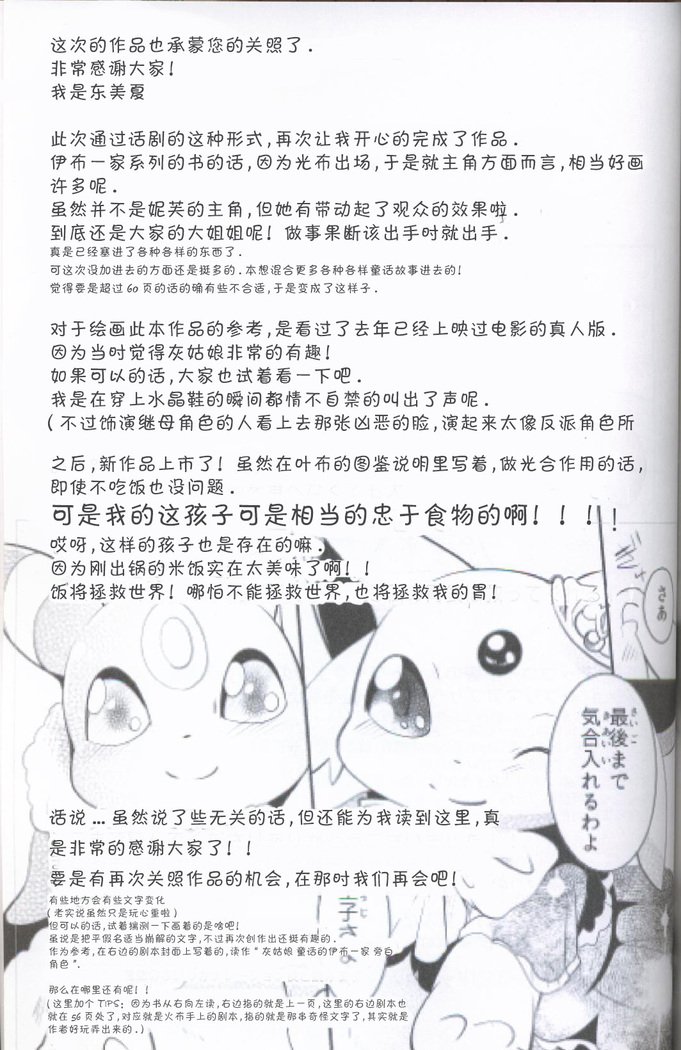 这次的作品也承蒙您的关照了.
非常感谢大家!
我是东美夏
此次通过话剧的这种形式,再次让我开心的完成了作品.
伊布一家系列的书的话,因为光布出场,于是就主角方面而言,相当好画
许多呢.
虽然并不是妮芙的主角,但她有带动起了观众的效果啦.
到底还是大家的大姐姐呢! 做事果断该出手时就出手.
真是已经塞进了各种各样的东西了.
可这次没加进去的方面还是挺多的.本想混合更多各种各样童话故事进去的!
觉得要是超过60页的话的确有些不合适,于是变成了这样子.
对于绘画此本作品的参考,是看过了去年已经上映过电影的真人版.
因为当时觉得灰姑娘非常的有趣!
如果可以的话,大家也试着看一下吧.
我是在穿上水晶鞋的瞬间都情不自禁的叫出了声呢.
(不过饰演继母角色的人看上去那张凶恶的脸,演起来太像反派角色所
之后,新作品上市了! 虽然在叶布的图鉴说明里写着,做光合作用的话,
即使不吃饭也没问题.
可是我的这孩子可是相当的忠于食物的啊! ! ! !
哎呀,这样的孩子也是存在的嘛.
因为刚出锅的米饭实在太美味了啊! !
饭将拯救世界! 哪怕不能拯救世界,也将拯救我的胃!
さあ
最後まで
気合入れるわよ
话说...虽然说了些无关的话,但还能为我读到这里,真
是非常的感谢大家了! !
要是有再次关照作品的机会,在那时我们再会吧!
有些地方会有些文字变化
(老实说虽然只是玩心重啦)
但可以的话,试着揣测一下画着的是啥吧!
虽说是把平假名适当崩解的文字,不过再次创作出还挺有趣的.
作为参考,在右边的剧本封面上写着的,读作"灰姑娘 童话的伊布一家 旁白
角色".
那么在哪里还有呢! !
(这里加个TIPS: 因为书从右向左读,右边指的就是上一页,这里的右边剧本也
就在56页处了,对应就是火布手上的剧本,指的就是那串奇怪文字了,其实就是
作者好玩弄出来的.)